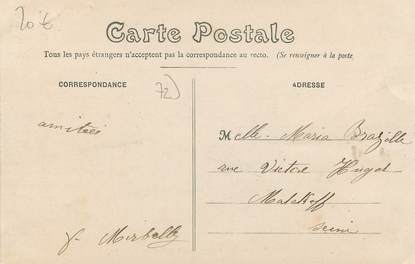 20 €
Carte Postale
Tous les pays étrangers n'acceptent pas la correspondance au recto. (Se renseigner à la poste)
CORRESPONDANCE
ADRESSE
72)
amitiés
Melle Maria
rue Victor Hugo
Malakoff
Seine